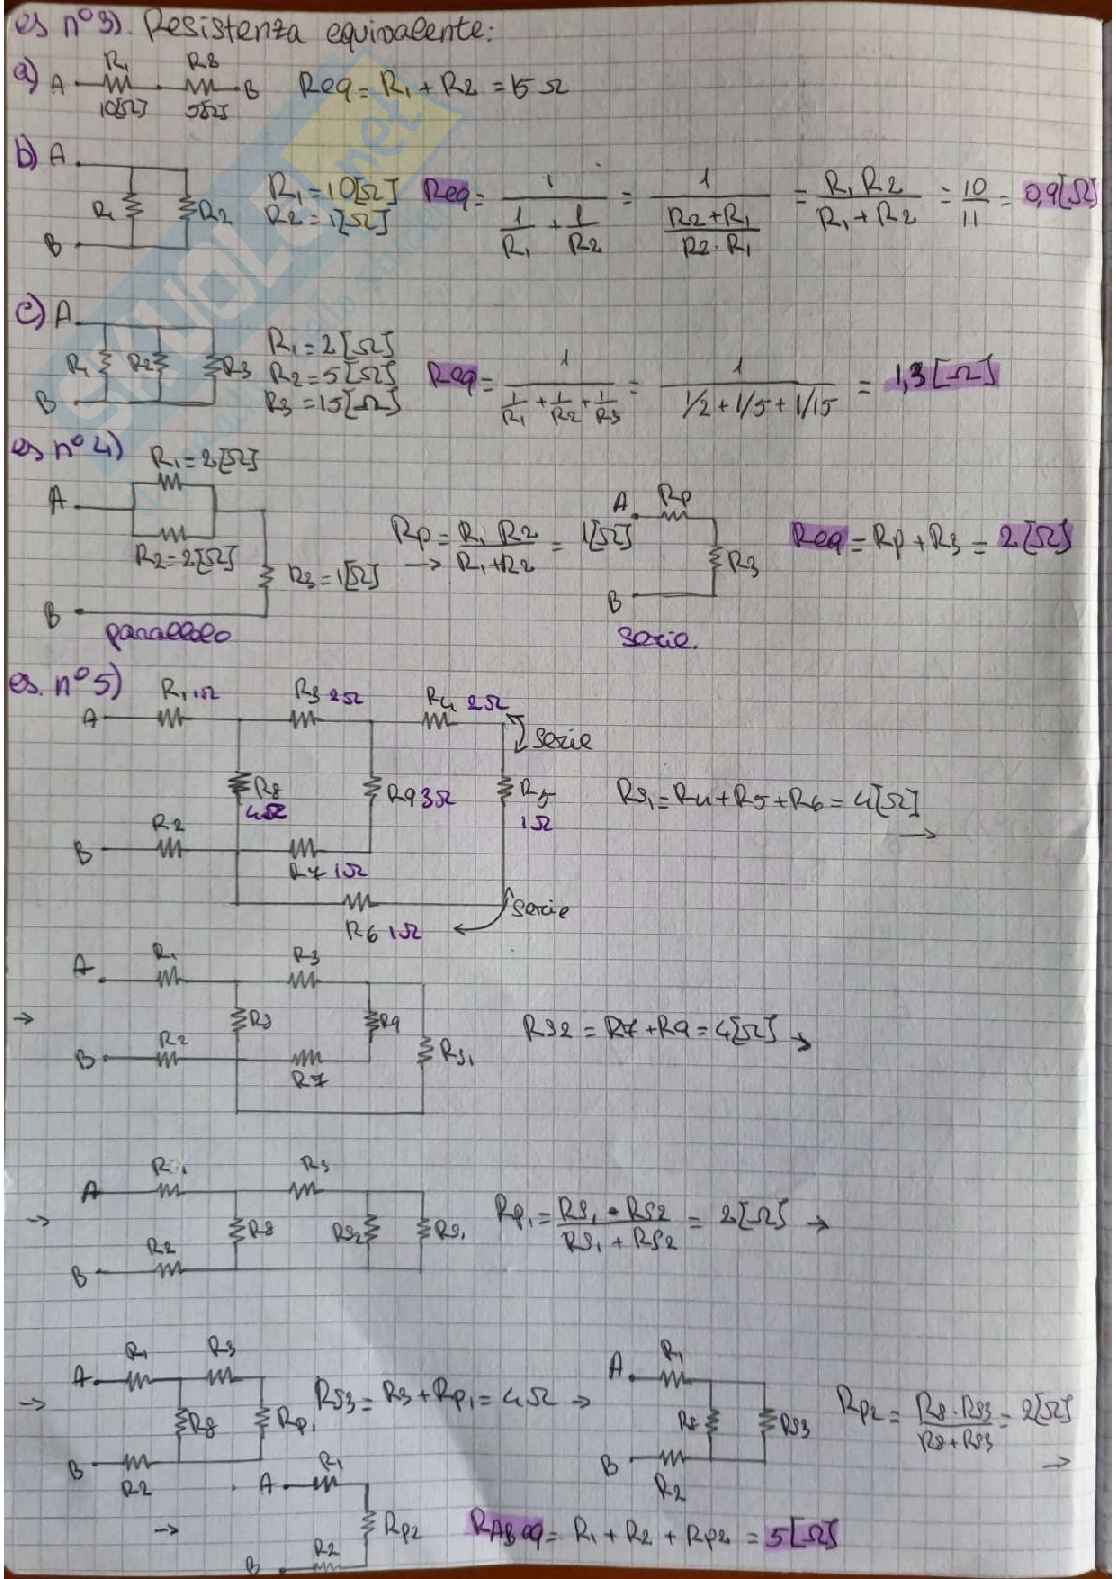 es n°3). Resistenza equivalente:
a) A R1 10[Ω] R2 5[Ω] B Req = R1 + R2 = 15 Ω
b) A B R1 R2 R1 = 10[Ω] R2 = 1[Ω] Req = 1 / (1/R1 + 1/R2) = 1 / ((R2+R1)/(R2·R1)) = R1 R2 / (R1 + R2) = 10/11 = 0,9[Ω]
c) A B R1 R2 R3 R1 = 2[Ω] R2 = 5[Ω] R3 = 15[Ω] Req = 1 / (1/R1 + 1/R2 + 1/R3) = 1 / (1/2 + 1/5 + 1/15) = 1,3[Ω]
es n°4) R1 = 2[Ω]
A R2 = 2[Ω] R3 = 1[Ω] B
parallelo
Rp = R1 R2 / (R1 + R2) = 1[Ω]
→
A Rp R3 B
serie.
Req = Rp + R3 = 2[Ω]
es. n°5) R1 1Ω R3 2Ω R4 2Ω
A serie
R8 4Ω R9 3Ω R5 1Ω Rs1 = R4 + R5 + R6 = 4[Ω]
→
B R2 R7 1Ω
serie
R6 1Ω
A R1 R3
→ R8 R9 Rs1 Rs2 = R7 + R9 = 4[Ω] →
B R2 R7
A R1 R3
→ R8 Rs2 Rs1 Rp1 = Rs1 · Rs2 / (Rs1 + Rs2) = 2[Ω] →
B R2
A R1 R3
→ R8 Rp1 Rs3 = R3 + Rp1 = 4Ω →
B R2
A R1
R8 Rs3 Rp2 = R8 · Rs3 / (R8 + Rs3) = 2[Ω]
→
B R2
A R1
→ Rp2 RABeq = R1 + R2 + Rp2 = 5[Ω]
B R2